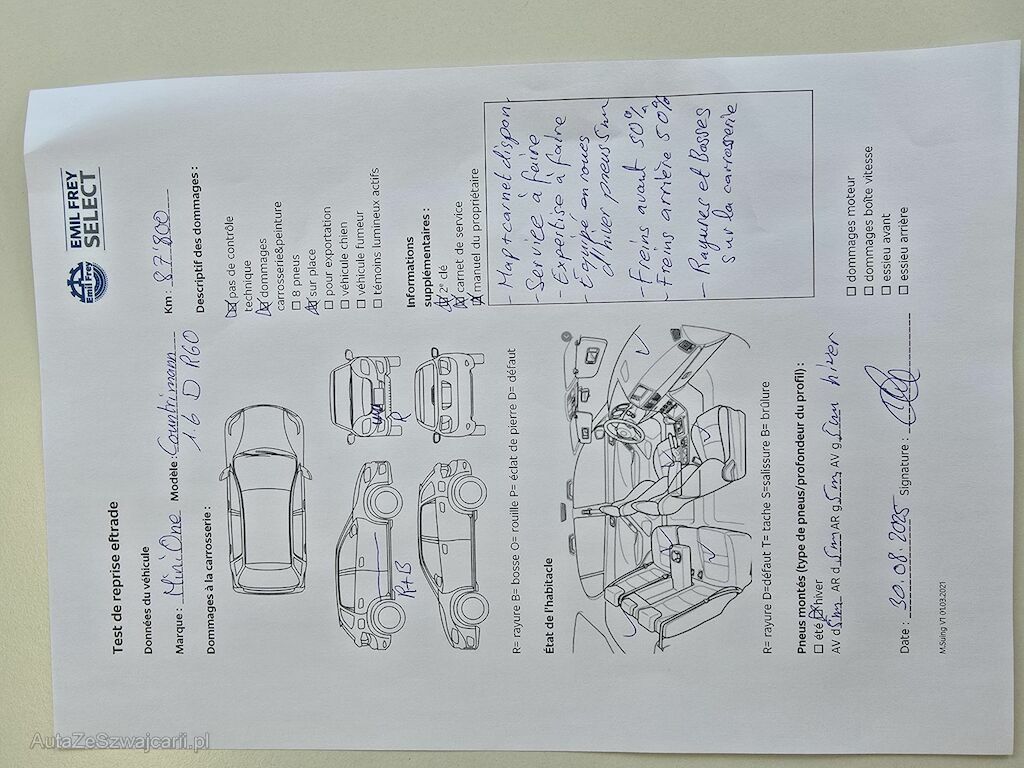 Test de reprise eftrade
Emil Frey
EMIL FREY
SELECT
Données du véhicule
Marque : Mini One Modèle : Countrimann Km : 87'800
1.6 D R60
Dommages à la carrosserie :
Descriptif des dommages :
pas de contrôle
technique
dommages
carrosserie&peinture
8 pneus
sur place
pour exportation
véhicule chien
véhicule fumeur
témoins lumineux actifs
P
R+B
Informations
supplémentaires :
2° clé
carnet de service
manuel du propriétaire
R= rayure B= bosse O= rouille P= éclat de pierre D= défaut
État de l'habitacle
- Map+carnet dispon
- Service à faire
- Expertise à faire
- Équipé en roues
d'hiver pneus 5mm
- Freins avant 50%
- Freins arrière 50%
- Rayures et Bosses
sur la carrosserie
R= rayure D=défaut T= tache S=salissure B= brûlure
Pneus montés (type de pneus/profondeur du profil) :
été hiver
AV d 5mm AR d 5mm AR g 5mm AV g 5mm hiver
dommages moteur
dommages boîte vitesse
essieu avant
essieu arrière
Date : 30.08.2025 Signature :
M.Suing V1 01.03.2021
AutaZeSzwajcarii.pl